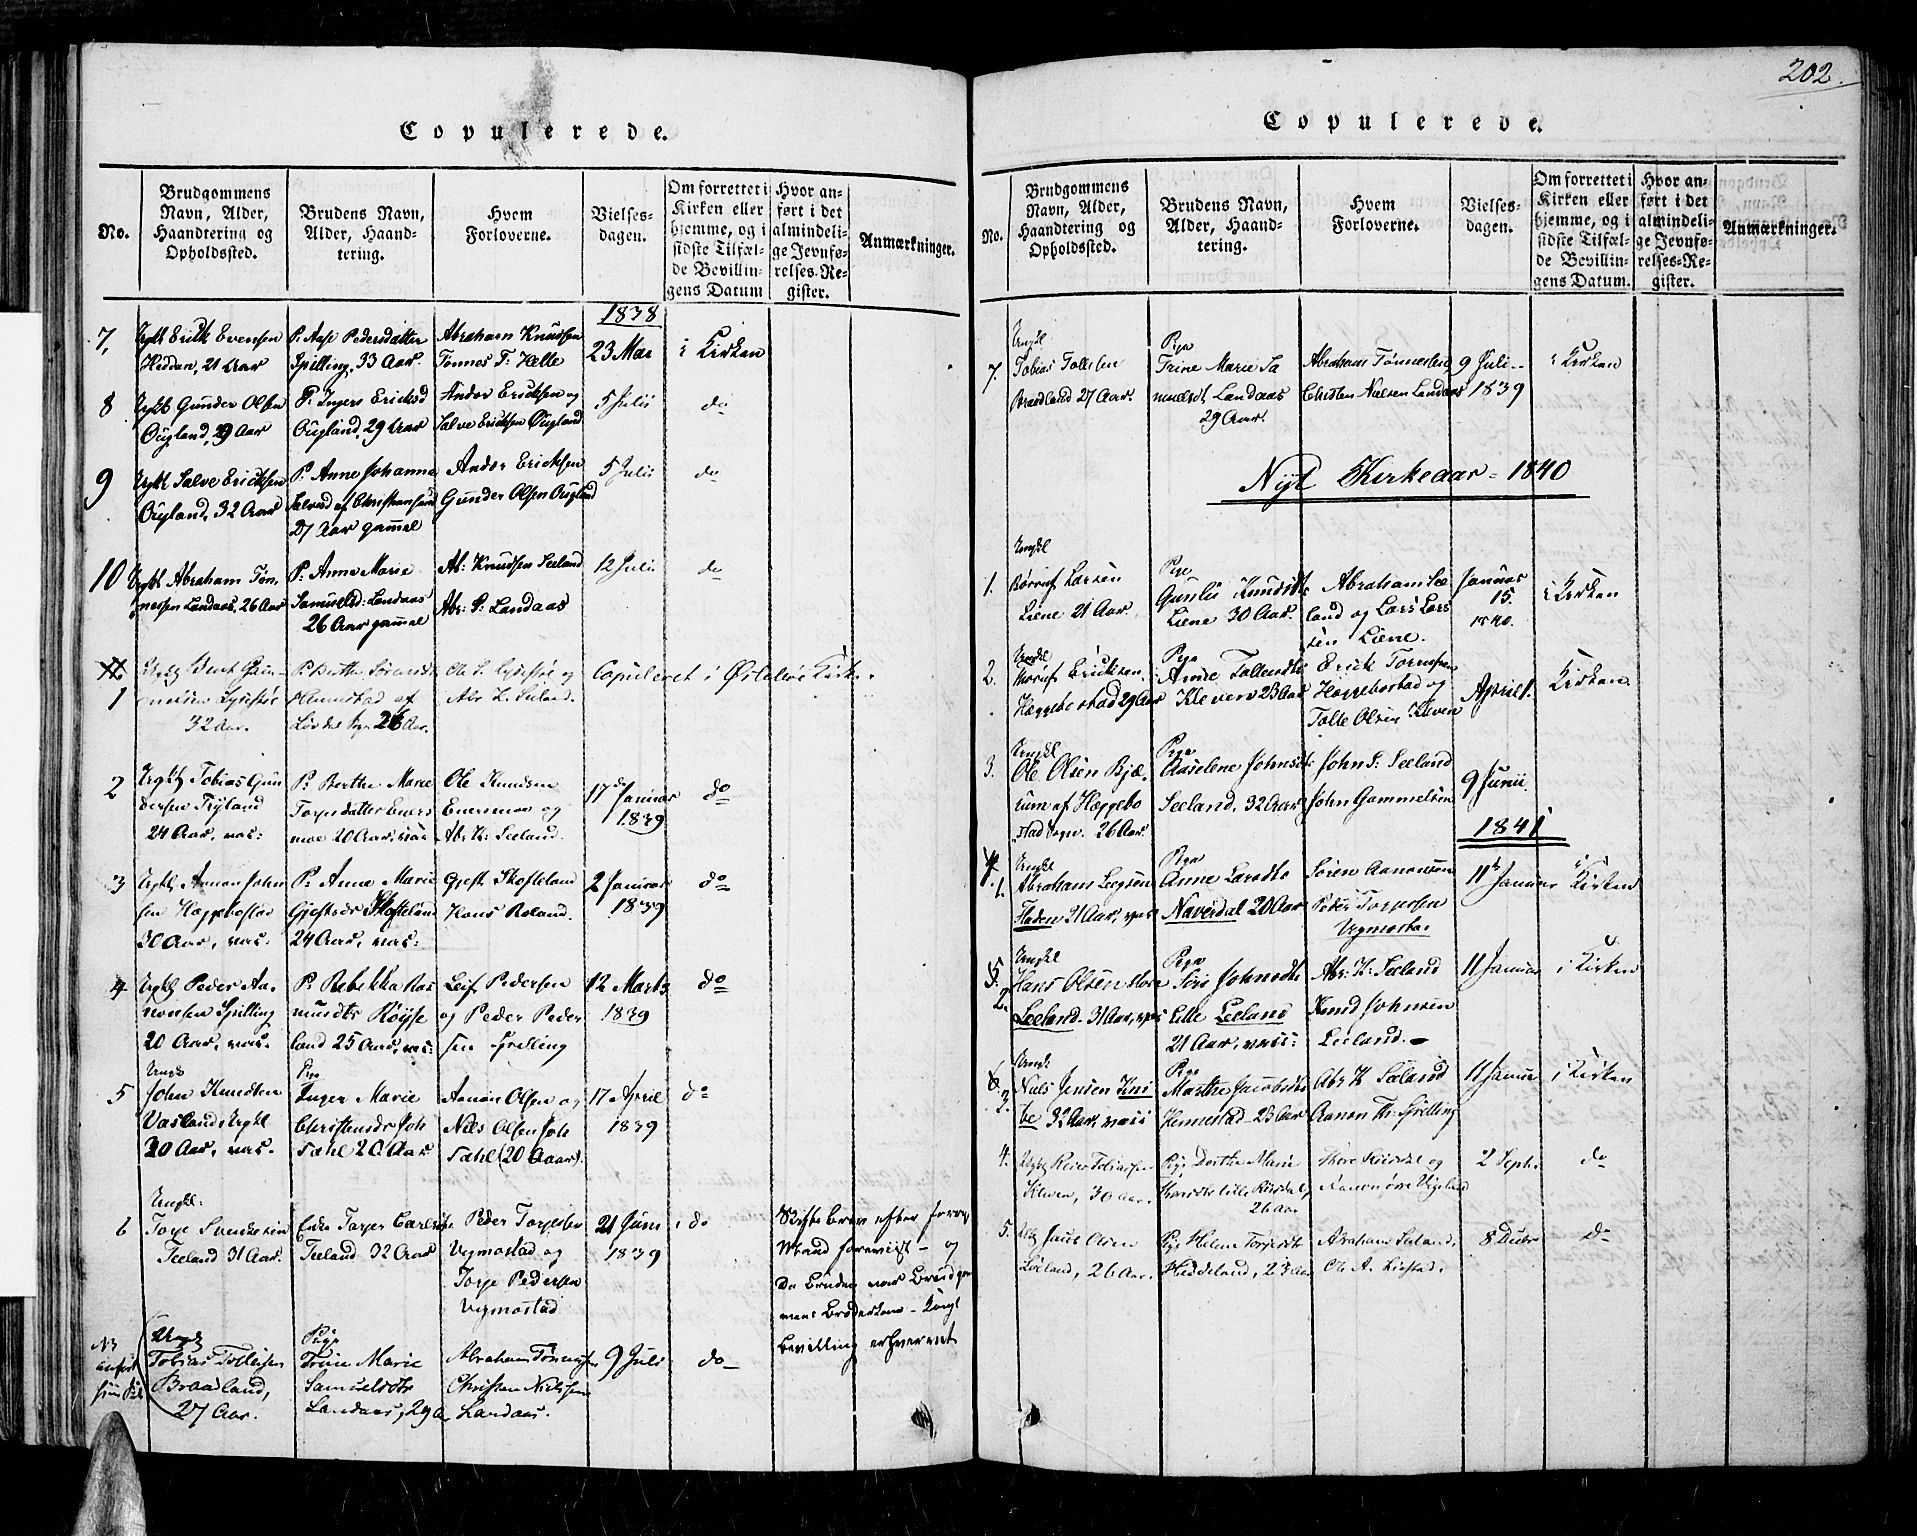 202.
Copulerede.
No.
Brudgommens Navn, Alder, Haandtering og Opholdssted.
Brudens Navn, Alder, Haandtering.
Hvem Forloverne.
Vielsesdagen.
Om forrettet i Kirken eller hjemme, og i sidste Tilfælde Bevillingens Datum
Hvor anført i det almindelige Jevnførelses-Register.
Anmærkninger.
1838
7, Ungk Erik Evensen
Heddan, 21 Aar
P: Aase Pedersdatter
Spilling, 33 Aar
Abraham Knudsen
Tønnes T: Helle
23 Mai
i Kirken
8 Ungk Gunder Olsen
Ougland, 29 Aar
P: Inger Ericksd
Ougland, 29 Aar
Andor Ericksen og
Salve Ericksen Ougland
5 Julii
do
9 Ungk Salve Ericksen
Ougland, 32 Aar
P: Anne Johanne
27 Aar gammel
Andor Ericksen
Gunder Olsen Ougland
5 Julii
do
10 Ungk Abraham Tøn-
nesen Landaas, 26 Aar
P: Anne Marie
Samuelsd: Landaas
26 Aar gammel
Ab: Knudsen Seeland
Abr: S: Landaas
12 Julii
do
1
32 Aar.
26 Aar.
Abr K. Seeland.
Copuleret i Øslebø Kirke.
2 Ungk Tobias Gun
dersen Tryland
24 Aar, vac:
P: Berthe Marie
Torjesdatter Eners
moe 20 Aar, vac:
Ole Knudsen
Enersmoe og
Abr K: Seeland.
17de Januar
1839
do
3 Ungk Aanon John
sen Hæggebostad
30 Aar, vac.
P: Anne Marie
Gjestsdr Skofteland
24 Aar, vac:
Gjest Skofteland
Hans Roland.
2 Januar
1839
do
4 Ungk Peder Aa-
nonsen Spilling
20 Aar, vac.
P: Rebekka Ras
musdtr Røyse
land 25 Aar, vac:
Leif Pedersen
og Peder Peder
sen Spilling
12 Marts
1839
do
5 Ungk
John Knudsen
Vasland, Ungkl
30 Aar, vac.
Pige
Inger Marie
Christensdr Joh
Dahl 20 Aar
Aanon Olsen og
Nils Olsen Joh
Dahl (20 Aar).
17 April
1839
do
6 Ungkl:
Torje Svenksen
Teeland 31 Aar.
Enke Torjer Carlsdtr
Teeland 32 Aar
Peder Torjesen
Vegmostad og
Torje Pedersen
Vegmostad
21 Juni
1839
i do
Skifte brev efter forrige
Mand foreviist - og
Da Bruden var Brudgom
mens Broderkone - Kongl
bevilling erhvervet
Ungk
Tobias Tollefsen
Braadland,
27 Aar.
Pige
Trine Marie
Samuelsdtr
Landaas, 29 A
Abraham Tønnesen
Christen Nielsen
Landaas.
9 Juli
do
Copulerede.
No.
Brudgommens Navn, Alder, Haandtering og Opholdssted.
Brudens Navn, Alder, Haandtering.
Hvem Forloverne.
Vielsesdagen.
Om forrettet i Kirken eller hjemme, og i sidste Tilfælde Bevillingens Datum.
Hvor anført i det almindelige Jevnførelses-Register.
Anmærkninger.
7. Ungkl
Tobias Tollefsen
Braadland 27 Aar.
Pige
Trine Marie Sa
muelsdt Landaas
29 Aar.
Abraham Tønnesen
Christen Nielsen Landaas
9 Juli
1839
i Kirken
Nyt Kirkeaar - 1840
1. Ungkl
Børruf Larsen
Liene 21 Aar.
Pige
Gunlu Knudsdtr
Liene 30 Aar.
Abraham See
land og Lars Lars
sen Liene.
Januar
15.
1840.
i Kirken
2. Ungkl
Ericksen
Hæggebostad 29 Aar
Pige
Anne Tollensdtr
Kleven 23 Aar
Erick Tormosen
Hæggebostad og
Tolle Olsen Kleven
April 1.
Kirken.
3. Ungkl
Ole Olsen Bjæ
rum af Hæggebo
stad Sogn. 26 Aar.
Pige
Aaselene Johnsdt
Seeland, 32 Aar
John S: Seeland
John Gammelsen
9 Junii.
1841
1. Ungkl
Abraham Leegsen
Fladen 21 Aar, vac
Pige
Anne Larsdtr
Naverdal 20 Aar
Søren Aanonsen
Peder Torjesen
Vegmostad
11te Januar
i Kirken
5. 2. Ungkl
Hans Olsen Store
Leeland. 31 Aar, vac
Pige
Siri Johnsdtr
Lille Leeland
21 Aar, vac:
Abr: K: Seeland
Knud Johnsen
Leeland.
11 Januar
i Kirken
6 3. Ungk
Niels Jensen Kni
be 32 Aar, vac:
Pige
Marthe Jacobsdtr
Hennestad 23 Aar
Abr K Seeland
Aanon Th: Spilling
11 Januar
i Kirken
4. Ungk Reier Tobiassen
Kleven, 30 Aar.
Pige Dorthe Marie
26 Aar
2 Septr.
do
5. Olsen
Leeland, 26 Aar.
Pige Helene Torjesdtr
Heddeland, 23 Aar
Abraham Seeland,
8 Decbr
do